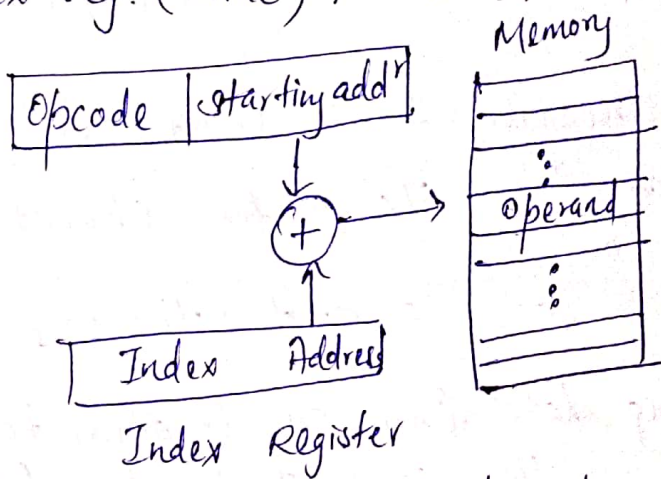 Memory
Opcode starting addr
+
Operand
Index Address
Index Register